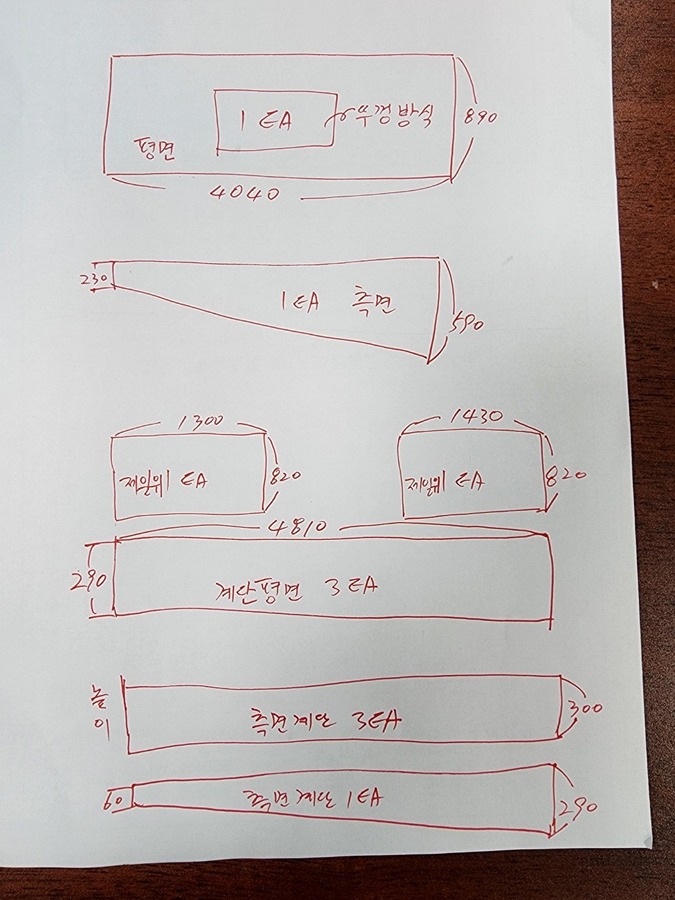 1 EA
뚜껑방식
890
평면
4040
230
1 EA 측면
590
1300
1430
제일위 1 EA
820
제일위 1 EA
820
4810
290
계단평면 3EA
높이
측면계단 3EA
300
60
측면계단 1EA
290